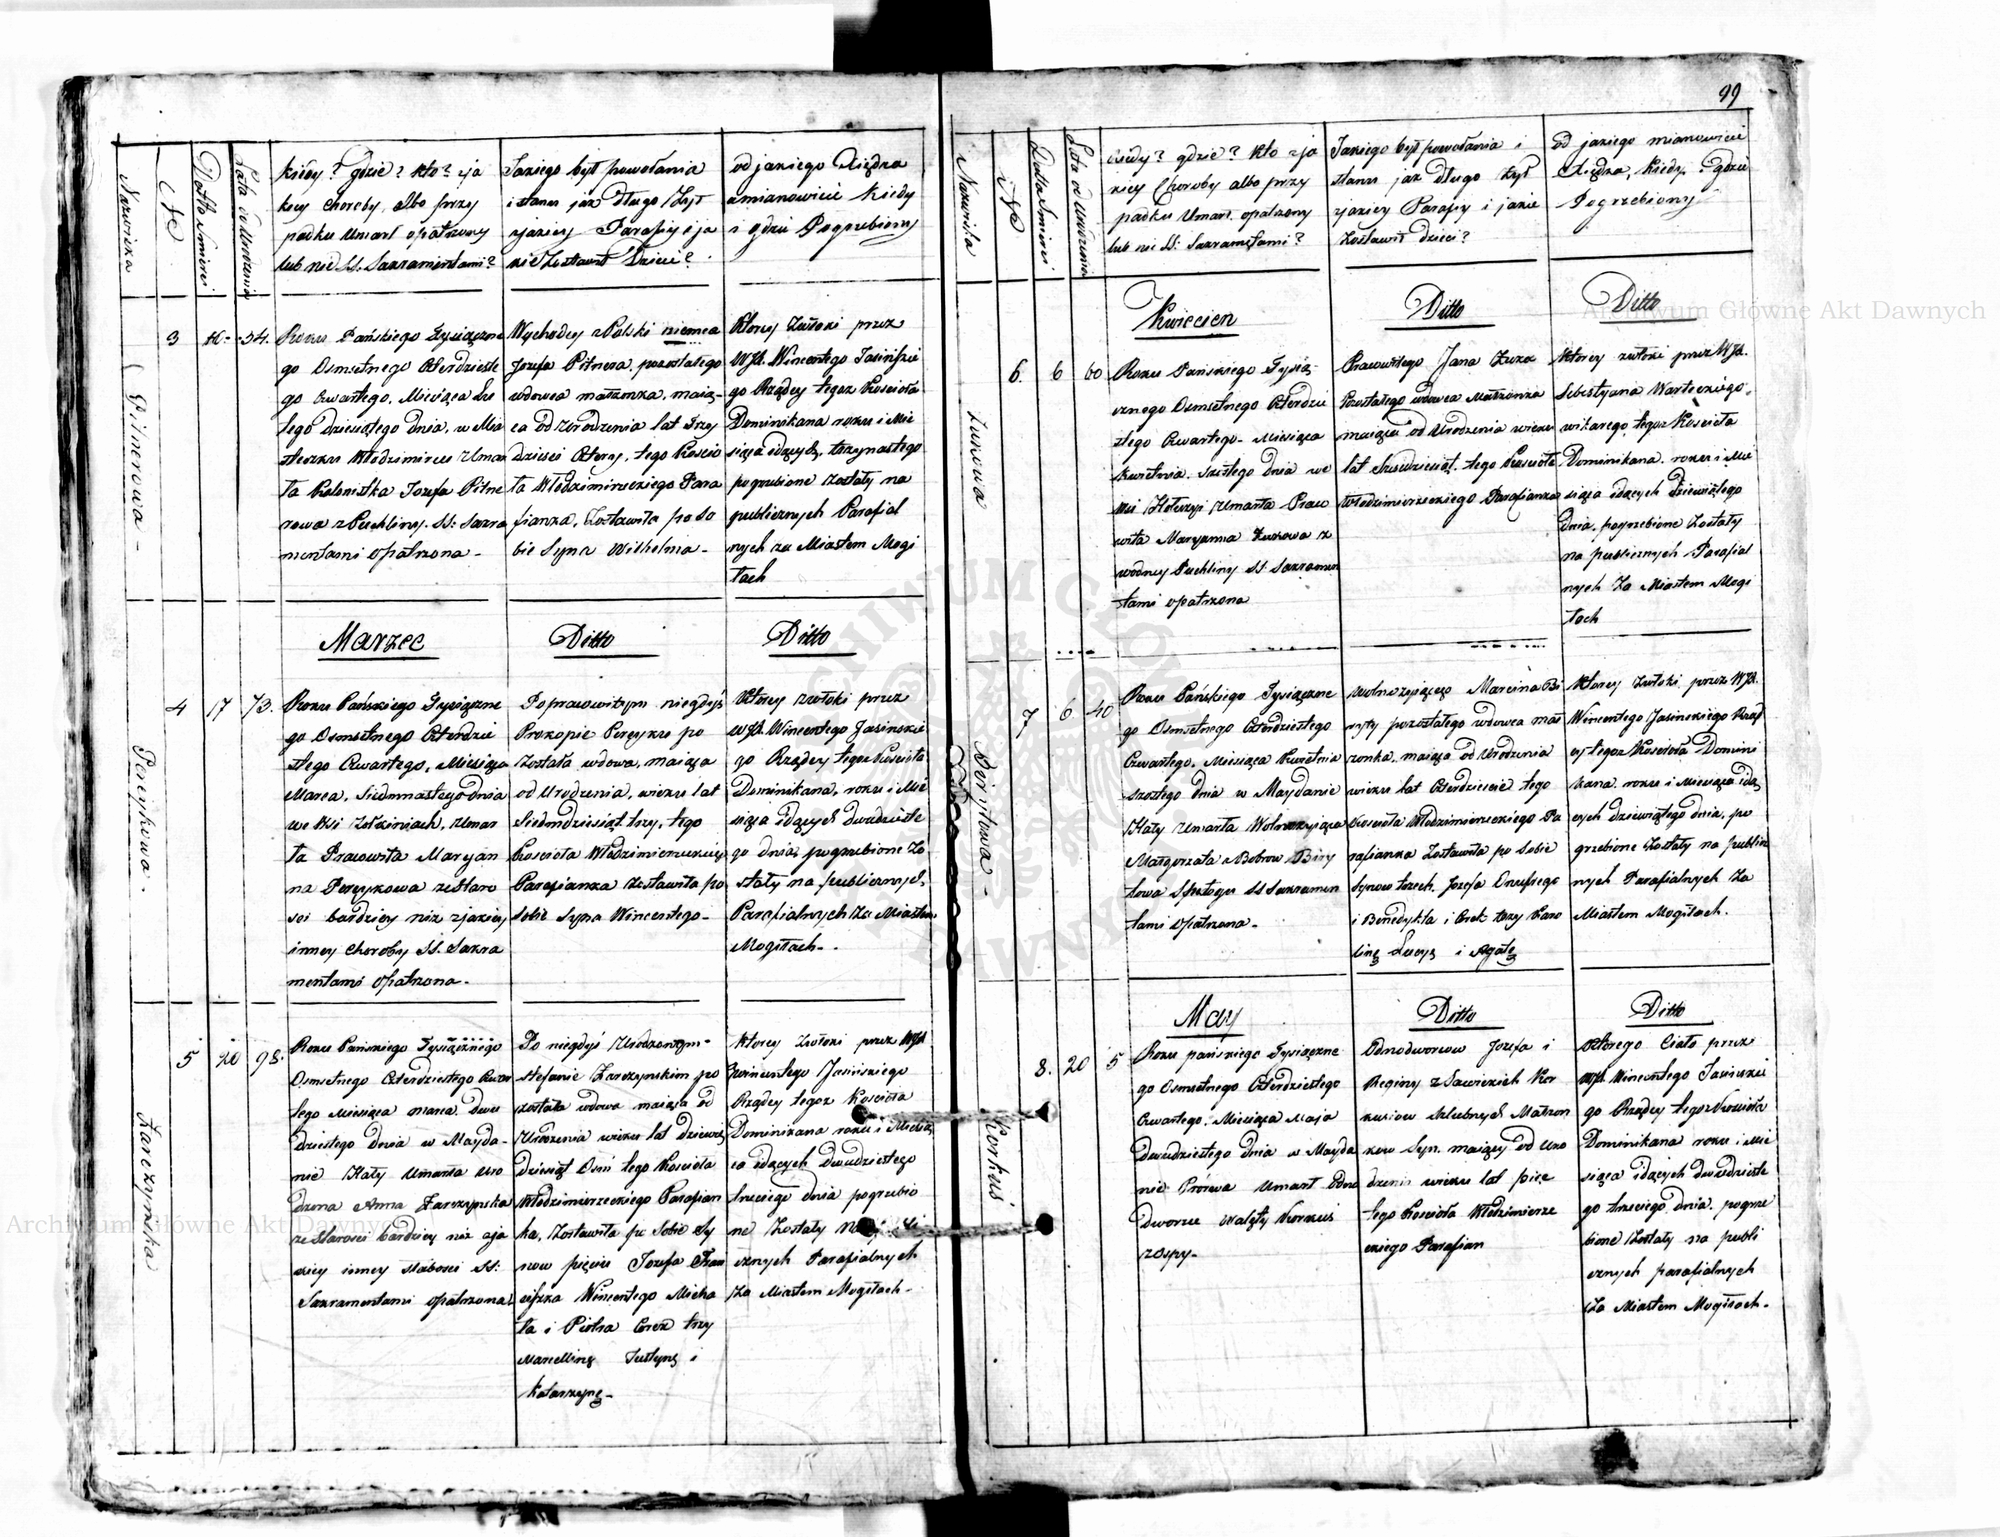 Nazwiska
N
Data Śmierci
Lata od Urodzenia
kiedy? gdzie? kto? zja
kiey choroby, albo przy
padku umarł opatrzony
lub nie SS. Sakramentami?
Jakiego był powołania
i stanu jak długo żył
i jakiey Parafiy i ja
kie zostawił Dzieci?
od jakiego Xiędza
mianowicie kiedy
i gdzie Pogrzebiony
Pitnerowa
3
34.
Roku Pańskiego Tysiączne
go Osmsetnego Czterdzieste
go Czwartego, Miesiąca Lu
tego dziesiątego dnia, w Mia
steczku Włodzimircu Umar
ła Kolonistka Jozefa Pitne
rowa z Puchliny. SS: Sakra
mentami opatrzona -
Wychodcy z Polski niemca
Jozefa Pitnera, pozostałego
wdowca małżonka, maią-
ca od Urodzenia lat Trzy
dzieści Cztery, tego Kościo
ła Włodzimirzeckiego Para
fianka, Zostawiła po so
bie Syna Wilhelma -
Ktorey zwłoki przez
WJX. Wincentego Jasińskie
go Rządcy tegoz Kościoła
Dominikana roku i Mie
siąca idących, trzynastego
pogrzebione zostały na
publicznych Parafial
nych za Miastem Mogi
łach
Marzec
Ditto
Ditto
Perezykowa
4
17
73.
Roku Pańskiego Tysiączne
go Osmsetnego Czterdzie
stego Czwartego, Miesiąca
Marca, Siedmnastego dnia
we Wsi Zołkiniach, Umar
ła Pracowita Maryan
na Perezykowa ze Staro
sci bardziey niz z jakiey
inney choroby SS. Sakra
mentami opatrzona -
Po pracowitym niegdyś
Prokopie Perezyku po
została wdowa, maiąca
od Urodzenia, wieku lat
Siedmdziesiąt trzy, tego
Kościoła Włodzimierzeckiego
Parafianka zostawiła po
sobie Syna Wincentego -
Ktorey zwłoki przez
WJX. Wincentego Jasinskie
go Rządcy tegoz Kościoła
Dominikana, roku i Mie
siąca idących dwudzieste
go dnia, pogrzebione zo
stały na publicznych,
Parafialnych za Miastem
Mogiłach -
Zarczynska
5
20
98.
Roku Pańskiego Tysiącznego
Osmsetnego Czterdziestego Czwar
tego Miesiąca marca Dwu
dziestego dnia w Mayda-
nie Huty Umarła Uro
dzona Anna Zarczynska
ze Starosci bardziey niż zja
kiey inney słabosci SS:
Sakramentami opatrzona
Po niegdyś Urodzonym -
Stefanie Zarczynskim po
została wdowa maiąca od
Urodzenia wieku lat dziewię
dziesiąt Osm tego Kościoła
Włodzimierzeckiego Parafian
ka, Zostawiła po sobie Sy
now pięciu Jozefa Fran
ciszka Wincentego Micha
ła i Piotra Corek trzy
Marcellinę Justynę i
Katarzynę -
Ktorey zwłoki przez WJX
Wincentego Jasinskiego
Rządcy tegoz Kościoła
Dominikana roku i Miesią
ca idących Dwudziestego
trzeciego dnia pogrzebio
ne zostały na
cznych Parafialnych
za Miastem Mogiłach -
99
Nazwiska
N
Data Śmierci
Lata od Urodzenia
kiedy? gdzie? kto zja
kiey Choroby albo przy
padku Umarł, opatrzony
lub nie SS: Sakramętami?
Jakiego był powołania i
stanu jak długo żył
zjakiey Parafiy i jakie
zostawił dzieci?
od jakiego mianowicie
Xiędza, kiedy, ? gdzie
Pogrzebiony
Kwiecien
Ditto
Ditto
Zukowa
6.
6
60
Roku Pańskiego Tysią
cznego Osmsetnego Czterdzie
stego Czwartego - Miesiąca
Kwietnia. Szostego dnia we
Wsi Umarła Praco
wita Maryanna Zukowa z
wodney Puchliny SS Sakramen
tami opatrzona
Pracowitego Jana Zuka
Pozostałego wdowca Małżonka
maiąca od Urodzenia wieku
lat Szesdziesiąt. tego Kościoła
Włodzimierzeckiego Parafianka
Ktorey zwłoki przez WJX.
Sebestyana Warteckiego,
wikarego, tegoz Kościoła
Dominikana. roku i Mie
siąca idących Dziewiątego
dnia, pogrzebione Zostały
na publicznych Parafial
nych Za Miastem Mogi
łach
Birytowa -
7
6
40
Roku Pańskiego Tysiączne
go Osmsetnego Czterdziestego
Czwartego. Miesiąca Kwietnia
szostego dnia w Maydanie
Huty Umarła Wolnożyiąca
Małgorzata z Bobrow Biry
towa SS Sakramen
tami opatrzona -
Wolnożyiącego Marcina Bi
ryty pozostałego wdowca mał
żonka, maiąca od Urodzenia
wieku lat Czterdziescie tego
Kościoła Włodzimierzeckiego Pa
rafianka Zostawiła po sobie
Synow trzech. Jozefa Onufrego
i Benedykta i Corek trzy Karo
linę Łucyę i Agatę
Ktorey Zwłoki przez WJX.
Wincentego Jasinskiego Rząd
cy tegoz Kościoła Domini
kana roku i Miesiąca idą
cych dziewiątego dnia, po
grzebione Zostały na public
nych Parafialnych Za
Miastem Mogiłach.
May
Ditto
Ditto
Korkuś
8.
20
5
Roku pańskiego Tysiączne
go Osmsetnego Czterdziestego
Czwartego. Miesiąca Maja
Dwudziestego dnia w Mayda
nie Prórwa Umarł Odno
dworzec Walęty Korkuś
zospy -
Odnodworcow Jozefa i
Reginy z Sawickich Kor
kusiow szlubnych Małżon
kow Syn, maiący od Uro
dzenia wieku lat pięc
tego Kościoła Włodzimierze
ckiego Parafian
Którego Ciało przez
WJX. Wincentego Jasinski
go Rządcy tegoz Kościoła
Dominikana roku i Mie
siąca idących dwudzieste
go trzeciego dnia. pogrze
bione Zostały na publi
cznych parafialnych
Za Miastem Mogiłach -
Archiwum Główne Akt Dawnych
Archiwum Główne Akt Dawnych